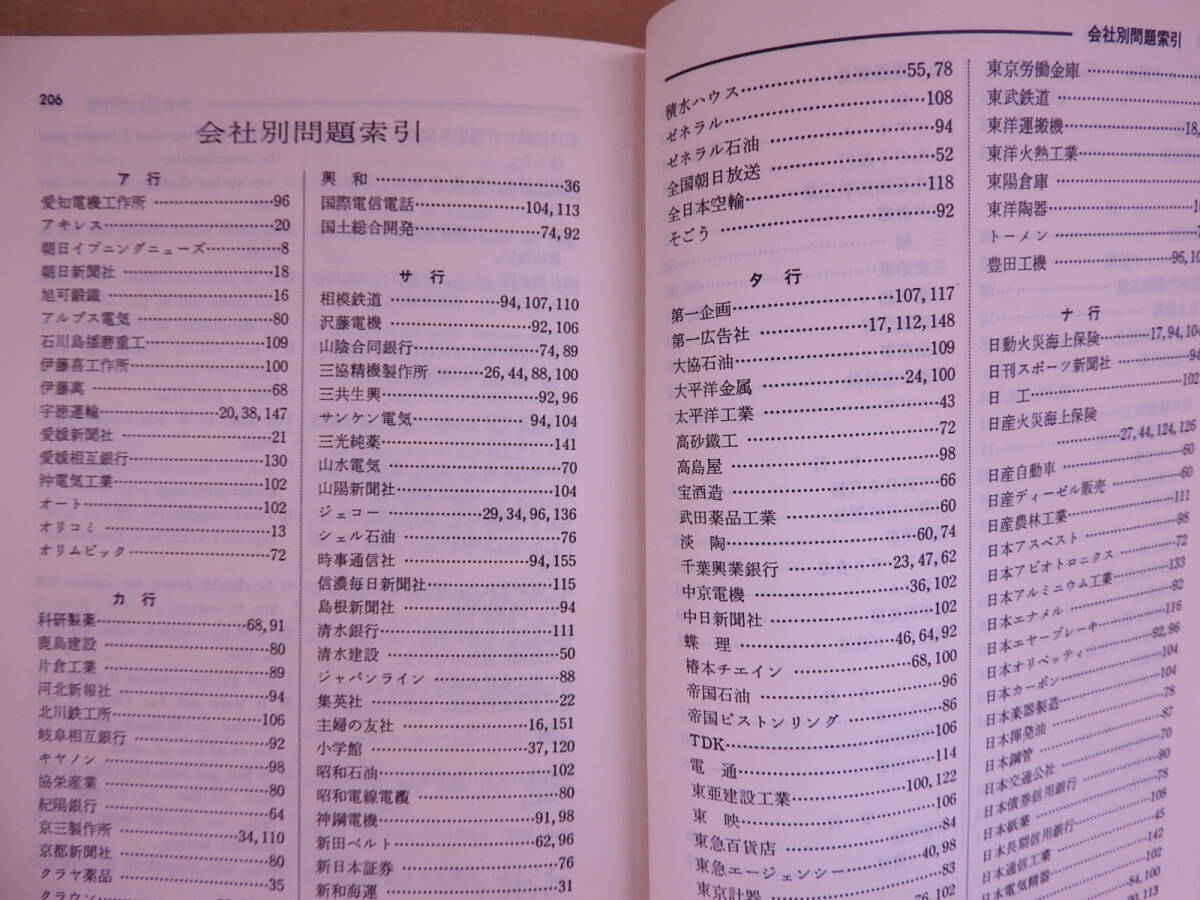 206
会社別問題索引
ア 行
愛知電機工作所……96
アキレス……20
朝日イブニングニューズ……8
朝日新聞社……18
旭可鍛鐵……16
アルプス電気……80
石川島播磨重工……109
伊藤喜工作所……100
伊藤萬……68
宇徳運輸……20,38,147
愛媛新聞社……21
愛媛相互銀行……130
沖電気工業……102
オート……102
オリコミ……13
オリムピック……72
カ 行
科研製薬……68,91
鹿島建設……80
片倉工業……89
河北新報社……94
北川鉄工所……106
岐阜相互銀行……92
キヤノン……98
協栄産業……80
紀陽銀行……64
京三製作所……34,110
京都新聞社……80
クラヤ薬品……35
クラウン
興 和……36
国際電信電話……104,113
国土総合開発……74,92
サ 行
相模鉄道……94,107,110
沢藤電機……92,106
山陰合同銀行……74,89
三協精機製作所……26,44,88,100
三共生興……92,96
サンケン電気……94,104
三光純薬……141
山水電気……70
山陽新聞社……104
ジェコー……29,34,96,136
シェル石油……76
時事通信社……94,155
信濃毎日新聞社……115
島根新聞社……94
清水銀行……111
清水建設……50
ジャパンライン……88
集英社……22
主婦の友社……16,151
小学館……37,120
昭和石油……102
昭和電線電纜……80
神鋼電機……91,98
新田ベルト……62,96
新日本証券……76
新和海運……31
会社別問題索引
積水ハウス……55,78
ゼネラル……108
ゼネラル石油……94
全国朝日放送……52
全日本空輸……118
そごう……92
タ 行
第一企画……107,117
第一広告社……17,112,148
大協石油……109
太平洋金属……24,100
太平洋工業……43
高砂鐵工……72
高島屋……98
宝酒造……66
武田薬品工業……60
淡 陶……60,74
千葉興業銀行……23,47,62
中京電機……36,102
中日新聞社……102
蝶 理……46,64,92
椿本チエイン……68,100
帝国石油……96
帝国ピストンリング……86
TDK……106
電 通……114
東亜建設工業……100,122
東 映……106
東急百貨店……84
東急エージェンシー……40,98
東京計器……83
76,102
東京労働金庫……
東武鉄道……
東洋運搬機……18,
東洋火熱工業……
東陽倉庫……
東洋陶器……
トーメン……
豊田工機……96,10
ナ 行
日動火災海上保険……17,94,104
日刊スポーツ新聞社……94
日 工……102
日産火災海上保険
……27,44,124,126
日産自動車……60
日産ディーゼル販売……60
日産農林工業……111
日本アスベスト……98
日本アビオトロニクス……72
日本アルミニウム工業……133
日本エナメル……92
日本エヤーブレーキ……116
日本オリベッティ……92,96
日本カーボン……104
日本楽器製造……104
日本揮発油……78
日本鋼管……87
日本交通公社……70
日本債券信用銀行……90
日本紙業……78
日本長期信用銀行……108
日本通信工業……45
日本電気精器……142
102
84,100
90,113